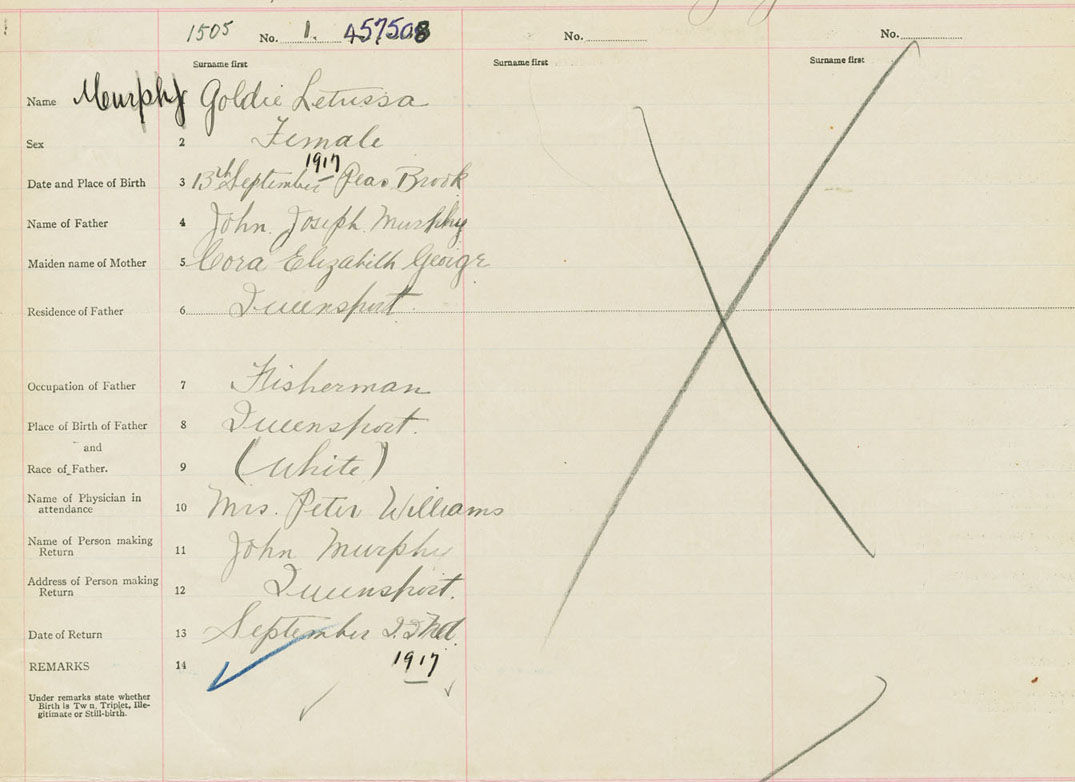 1505 No. 1. 457508 No. No.
Surname first Surname first Surname first
Name Murphy Goldie Letrissa
Sex 2 Female
1917
Date and Place of Birth 3 13th September Peas Brook
Name of Father 4 John Joseph Murphy
Maiden name of Mother 5 Cora Elizabeth George
Residence of Father 6 Queensport
Occupation of Father 7 Fisherman
Place of Birth of Father 8 Queensport.
and
Race of Father. 9 (White)
Name of Physician in
attendance 10 Mrs. Peter Williams
Name of Person making
Return 11 John Murphy
Address of Person making
Return 12 Queensport.
Date of Return 13 September
REMARKS 14 1917
Under remarks state whether
Birth is Tw n, Triplet, Ille-
gitimate or Still-birth.